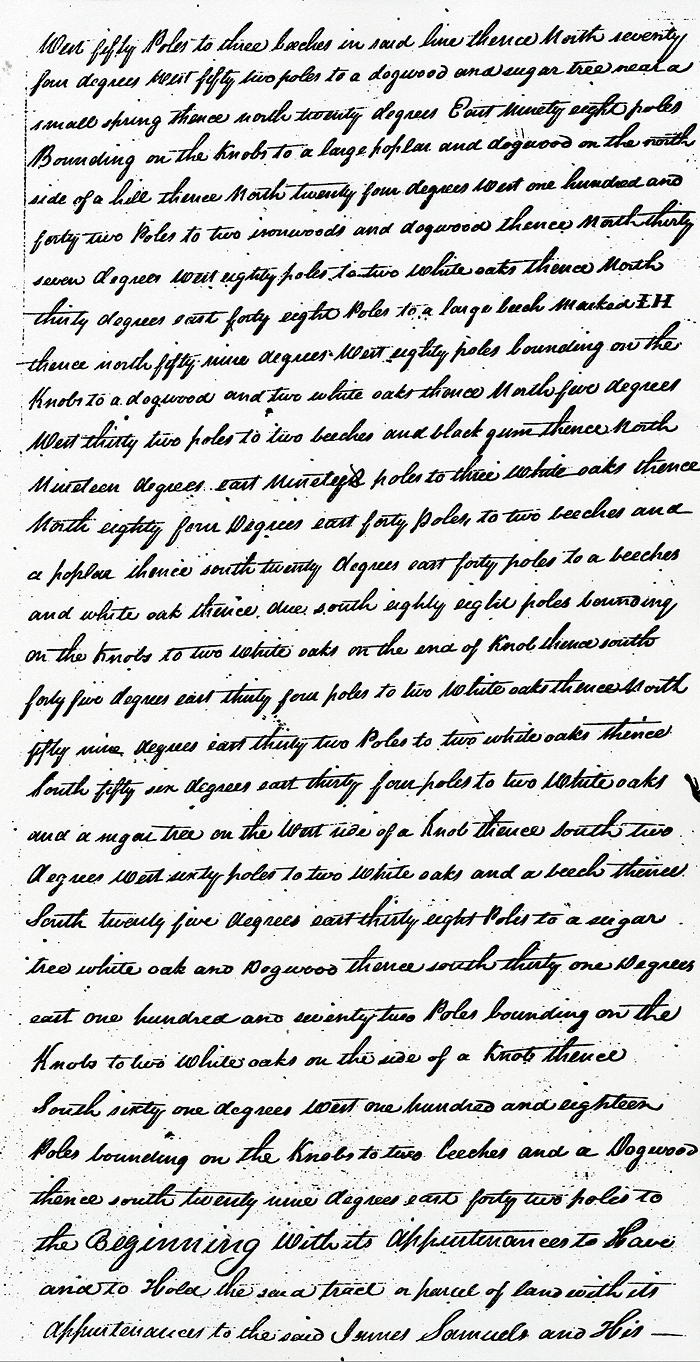 West fifty Poles to three beeches in said line thence North seventy
four degrees West fifty two poles to a dogwood and sugar tree near a
small spring thence north twenty degrees East Ninety eight poles
Bounding on the Knobs to a large poplar and dogwood on the north
side of a hill thence North twenty four degrees West one hundred and
forty two Poles to two ironwoods and dogwood thence North thirty
seven degrees West eighty poles to two White oaks thence North
thirty degrees east forty eight Poles to a large beech Marked IH
thence north fifty nine degrees West eighty poles bounding on the
Knobs to a dogwood and two white oaks thence North five degrees
West thirty two poles to two beeches and black gum thence North
Nineteen degrees east Ninety poles to three White oaks thence
North eighty four Degrees east forty Poles, to two beeches and
a poplar thence south twenty degrees east forty poles to a beeches
and white oak thence due south eighty eight poles bounding
on the Knobs to two White oaks on the end of Knob thence south
forty five degrees east thirty four poles to two White oaks thence North
fifty nine degrees east thirty two Poles to two white oaks thence
South fifty six degrees east thirty four poles to two White oaks
and a sugar tree on the West side of a Knob thence south two
degrees West sixty poles to two White oaks and a beech thence
South twenty five degrees east thirty eight Poles to a sugar
tree white oak and Dogwood thence south thirty one Degrees
east one hundred and seventy two Poles bounding on the
Knobs to two White oaks on the side of a Knob thence
South sixty one degrees West one hundred and eighteen
Poles bounding on the Knobs to two beeches and a Dogwood
thence south twenty nine degrees east forty two poles to
the Beginning With its Appurtenances to Have
and to Hold the said tract or parcel of land with its
Appurtenances to the said James Samuels and His —